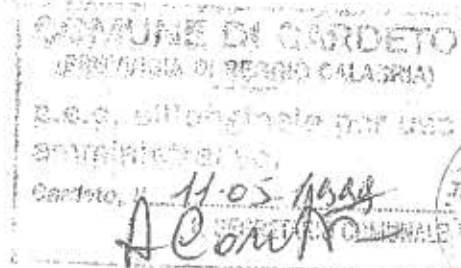 COMUNE DI CARDETO
(PROVINCIA DI REGGIO CALABRIA)
p.c.c. all'originale per uso
amministrativo.
Cardeto, li 11-05-
SEGRETARIO COMUNALE